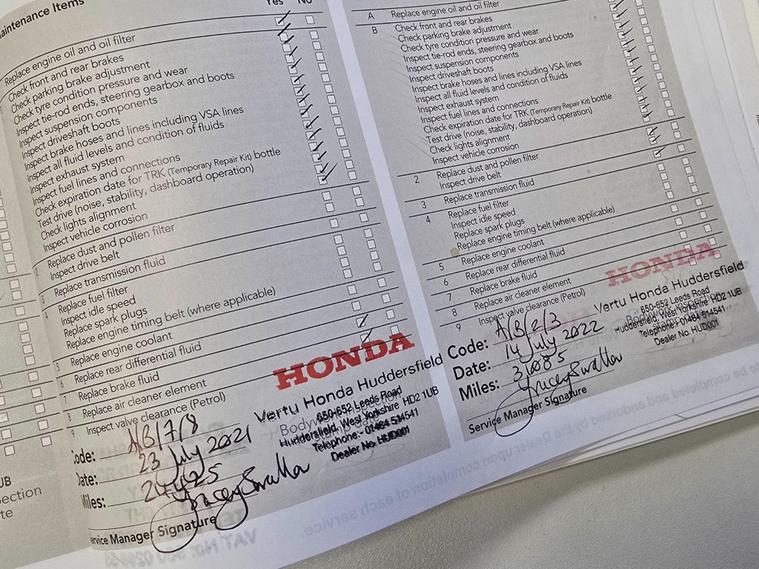 Maintenance Items
Yes No
Replace engine oil and oil filter
Check front and rear brakes
Check parking brake adjustment
Check tyre condition pressure and wear
Inspect tie-rod ends, steering gearbox and boots
Inspect suspension components
Inspect driveshaft boots
Inspect brake hoses and lines including VSA lines
Inspect all fluid levels and condition of fluids
Inspect exhaust system
Inspect fuel lines and connections
Check expiration date for TRK (Temporary Repair Kit) bottle
Test drive (noise, stability, dashboard operation)
Check lights alignment
Inspect vehicle corrosion
Replace dust and pollen filter
Inspect drive belt
3 Replace transmission fluid
4 Replace fuel filter
Inspect idle speed
Replace spark plugs
Replace engine timing belt (where applicable)
5 Replace engine coolant
6 Replace rear differential fluid
7 Replace brake fluid
8 Replace air cleaner element
9 Inspect valve clearance (Petrol)
HONDA
Vertu Honda Huddersfield
650-652 Leeds Road
Huddersfield, West Yorkshire HD2 1UB
Telephone:- 01484 514541
Dealer No. HUD001
Code: A/B/7/8
Date: 23 July 2021
Miles: 24425
Service Manager Signature
A Replace engine oil and oil filter
B Check front and rear brakes
Check parking brake adjustment
Check tyre condition pressure and wear
Inspect tie-rod ends, steering gearbox and boots
Inspect suspension components
Inspect driveshaft boots
Inspect brake hoses and lines including VSA lines
Inspect all fluid levels and condition of fluids
Inspect exhaust system
Inspect fuel lines and connections
Check expiration date for TRK (Temporary Repair Kit) bottle
Test drive (noise, stability, dashboard operation)
Check lights alignment
Inspect vehicle corrosion
2 Replace dust and pollen filter
Inspect drive belt
3 Replace transmission fluid
4 Replace fuel filter
Inspect idle speed
Replace spark plugs
Replace engine timing belt (where applicable)
5 Replace engine coolant
6 Replace rear differential fluid
7 Replace brake fluid
8 Replace air cleaner element
9 Inspect valve clearance (Petrol)
HONDA
Vertu Honda Huddersfield
650-652 Leeds Road
Huddersfield, West Yorkshire HD2 1UB
Telephone:- 01484 514541
Dealer No. HUD001
Code: A/B/2/3
Date: 14 July 2022
Miles: 31085
Service Manager Signature